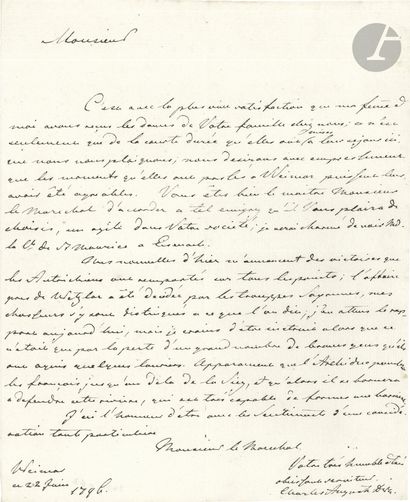 Monsieur
C'est avec la plus vive satisfaction que ma femme et
moi avons reçu les dames de Votre famille chez nous; ce n'est
seulement que de la courte durée qu'elles ont fait leur séjour ici,
que nous nous plaignons; nous désirons avec empressement
que les moments qu'elles ont passés à Weimar puissent leur
avoir été agréables. Vous êtes bien le maitre Monsieur
le Marechal d'accorder a tel emigré qu'il Vous plaira de
choisir, un azile dans Votre société; je serai charmé de voir Md.
la de St Maurice a Eisenach.
Nos nouvelles d'hier nous annoncent des victoires que
les Autrichiens ont remportés sur tous les points; l'affaire
près de Wetzlar a été decidé par les trouppes Saxonnes, mes
chasseurs s'y sont distingués a ce que l'on dit; j'en attens le rap-
port aujourd'hui, mais je crains d'être instruit alors que ce
n'était que par la perte d'un grand nombre de braves gens qu'ils
ont acquis quelques lauriers. Apparament que l'Archiduc poursuivra
les français jusqu'au dela de la Sieg, et qu'alors il se bornera
a defendre cette rivière, qui est très capable de former une barrière.
J'ai l'honneur d'être avec les Sentiments d'une considé-
ration toute particulière
Monsieur le Marechal
Weimar
ce 22 Juin 1796.
Votre très humble et très
obéissant serviteur
Charles Auguste